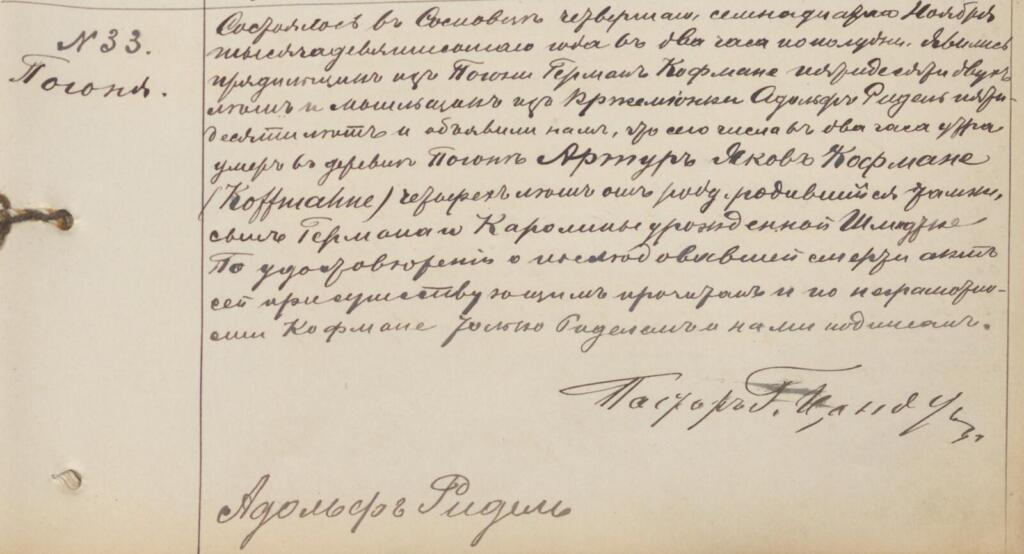 N 33.
Погоня.
Состоялось въ Сосновыхъ четвертаго, семнадцатаго Ноября
тысяча девятисотаго года въ два часа пополудни. Явились
прядильщикъ изъ Погони Германъ Кофмане пятидесяти двухъ
лѣтъ и мыльщикъ изъ Кржеміонки Адольфъ Ридель пяти-
десяти лѣтъ и объявили намъ, что сего числа въ два часа утра
умеръ въ деревнѣ Погонѣ Артуръ Яковъ Кофмане
(Koffmahne) четырехъ лѣтъ отъ роду, родившійся тамже,
сынъ Германа и Каролины урожденной Шмидтке
По удостовѣреніи о послѣдовавшей смерти актъ
сей присутствующимъ прочитанъ и по неграмотно-
сти Кофмане только Риделемъ и нами подписанъ.
Пасторъ Г.
Адольфъ Ридель